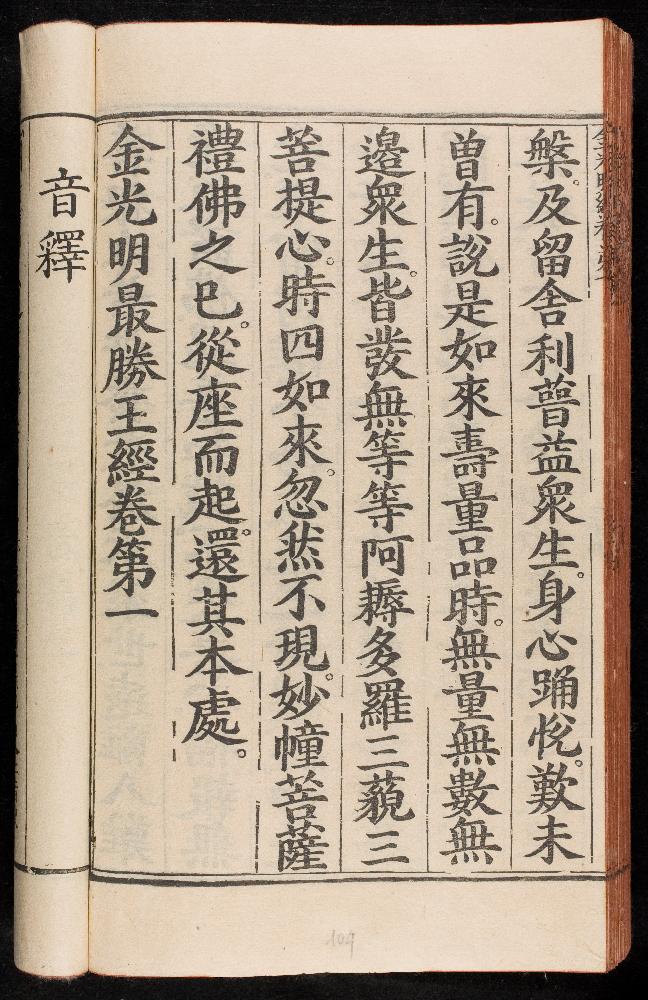 槃。及留舍利普益衆生。身心踊悅。歎未
曾有。說是如來壽量品時。無量無數無
邊衆生。皆發無等等阿耨多羅三藐三
菩提心。時四如來。忽然不現。妙幢菩薩
禮佛之已。從座而起。還其本處。
金光明最勝王經卷第一
音釋
109